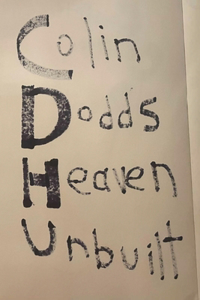 Colin
Dodds
Heaven
Unbuilt